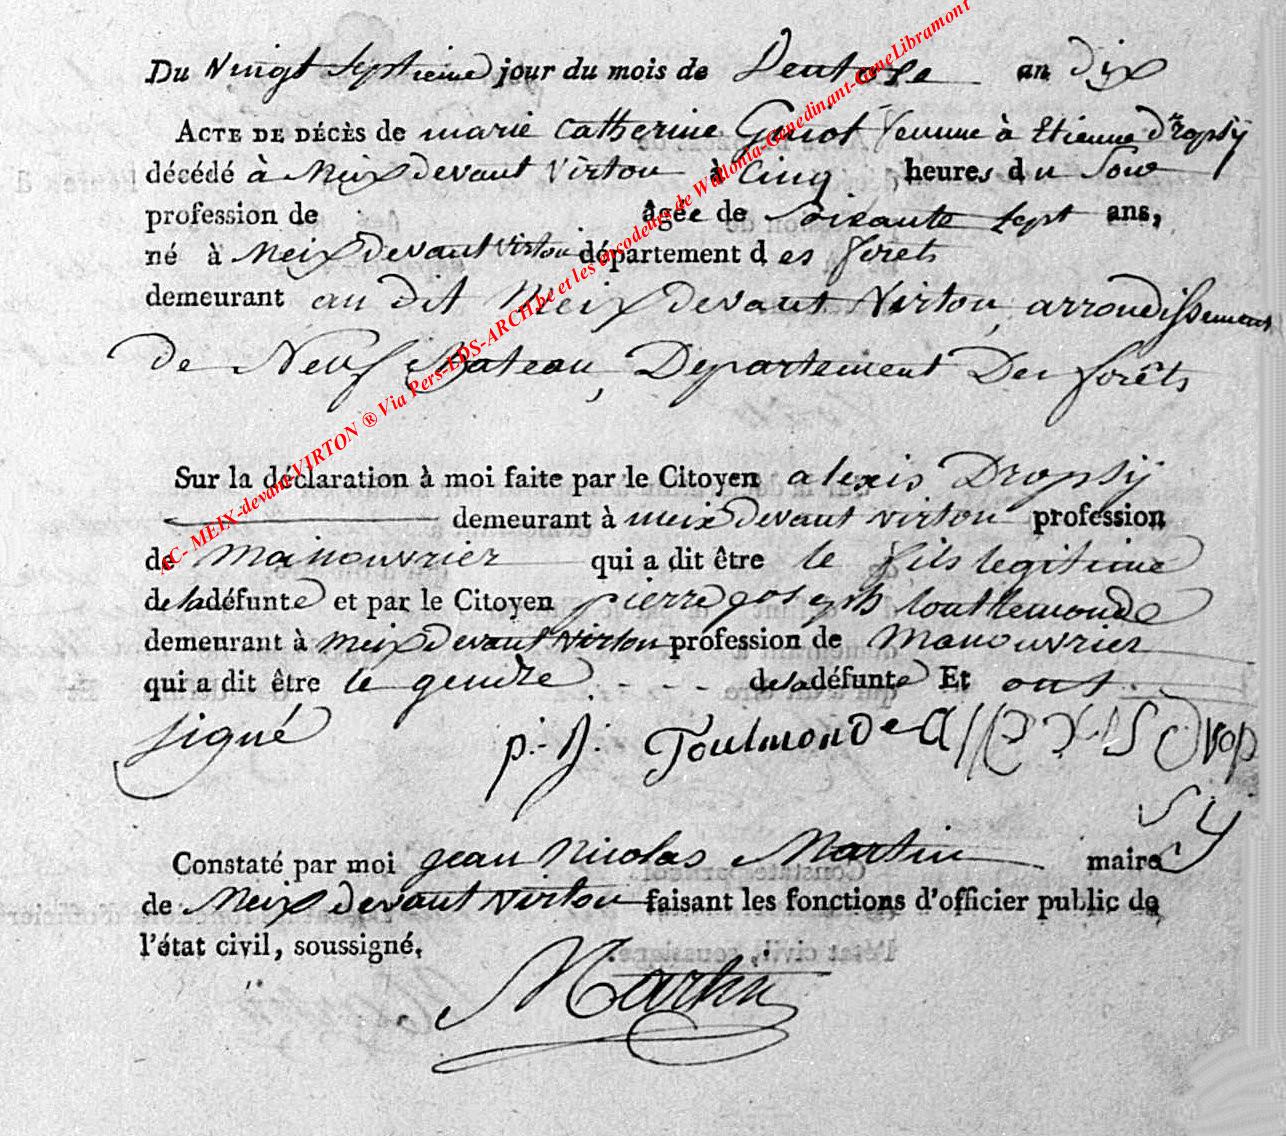 Du Vingt Septieme jour du mois de Ventose an dix
ACTE DE DÉCÈS de marie Catherine Guiot femme à Etienne Dropsÿ
décédé à Meix devant Virton à Cinq heures du Soir
profession de âgée de Soixante Sept ans,
né à Meix devant Virton département des forets
demeurant au dit Meix devant Virton, arrondissement
de Neuf Chateau, Departement Des forêts
Sur la déclaration à moi faite par le Citoyen alexis Dropsÿ
demeurant à meix devant virton profession
de manouvrier qui a dit être le fils legitime
de la défunte et par le Citoyen pierre joseph toutlemonde
demeurant à meix devant virton profession de manouvrier
qui a dit être le gendre de la défunte Et ont
signé p.-J. Toulmonde Allexis Drop
sy
Constaté par moi jean Nicolas Martin maire
de Meix devant virton faisant les fonctions d'officier public de
l'état civil, soussigné.
Martin
AC- MEIX-devant-VIRTON ® Via Pers-LDS-ARCH.be et les encodeurs de Wallonia-Genedinant-GeneLibramont